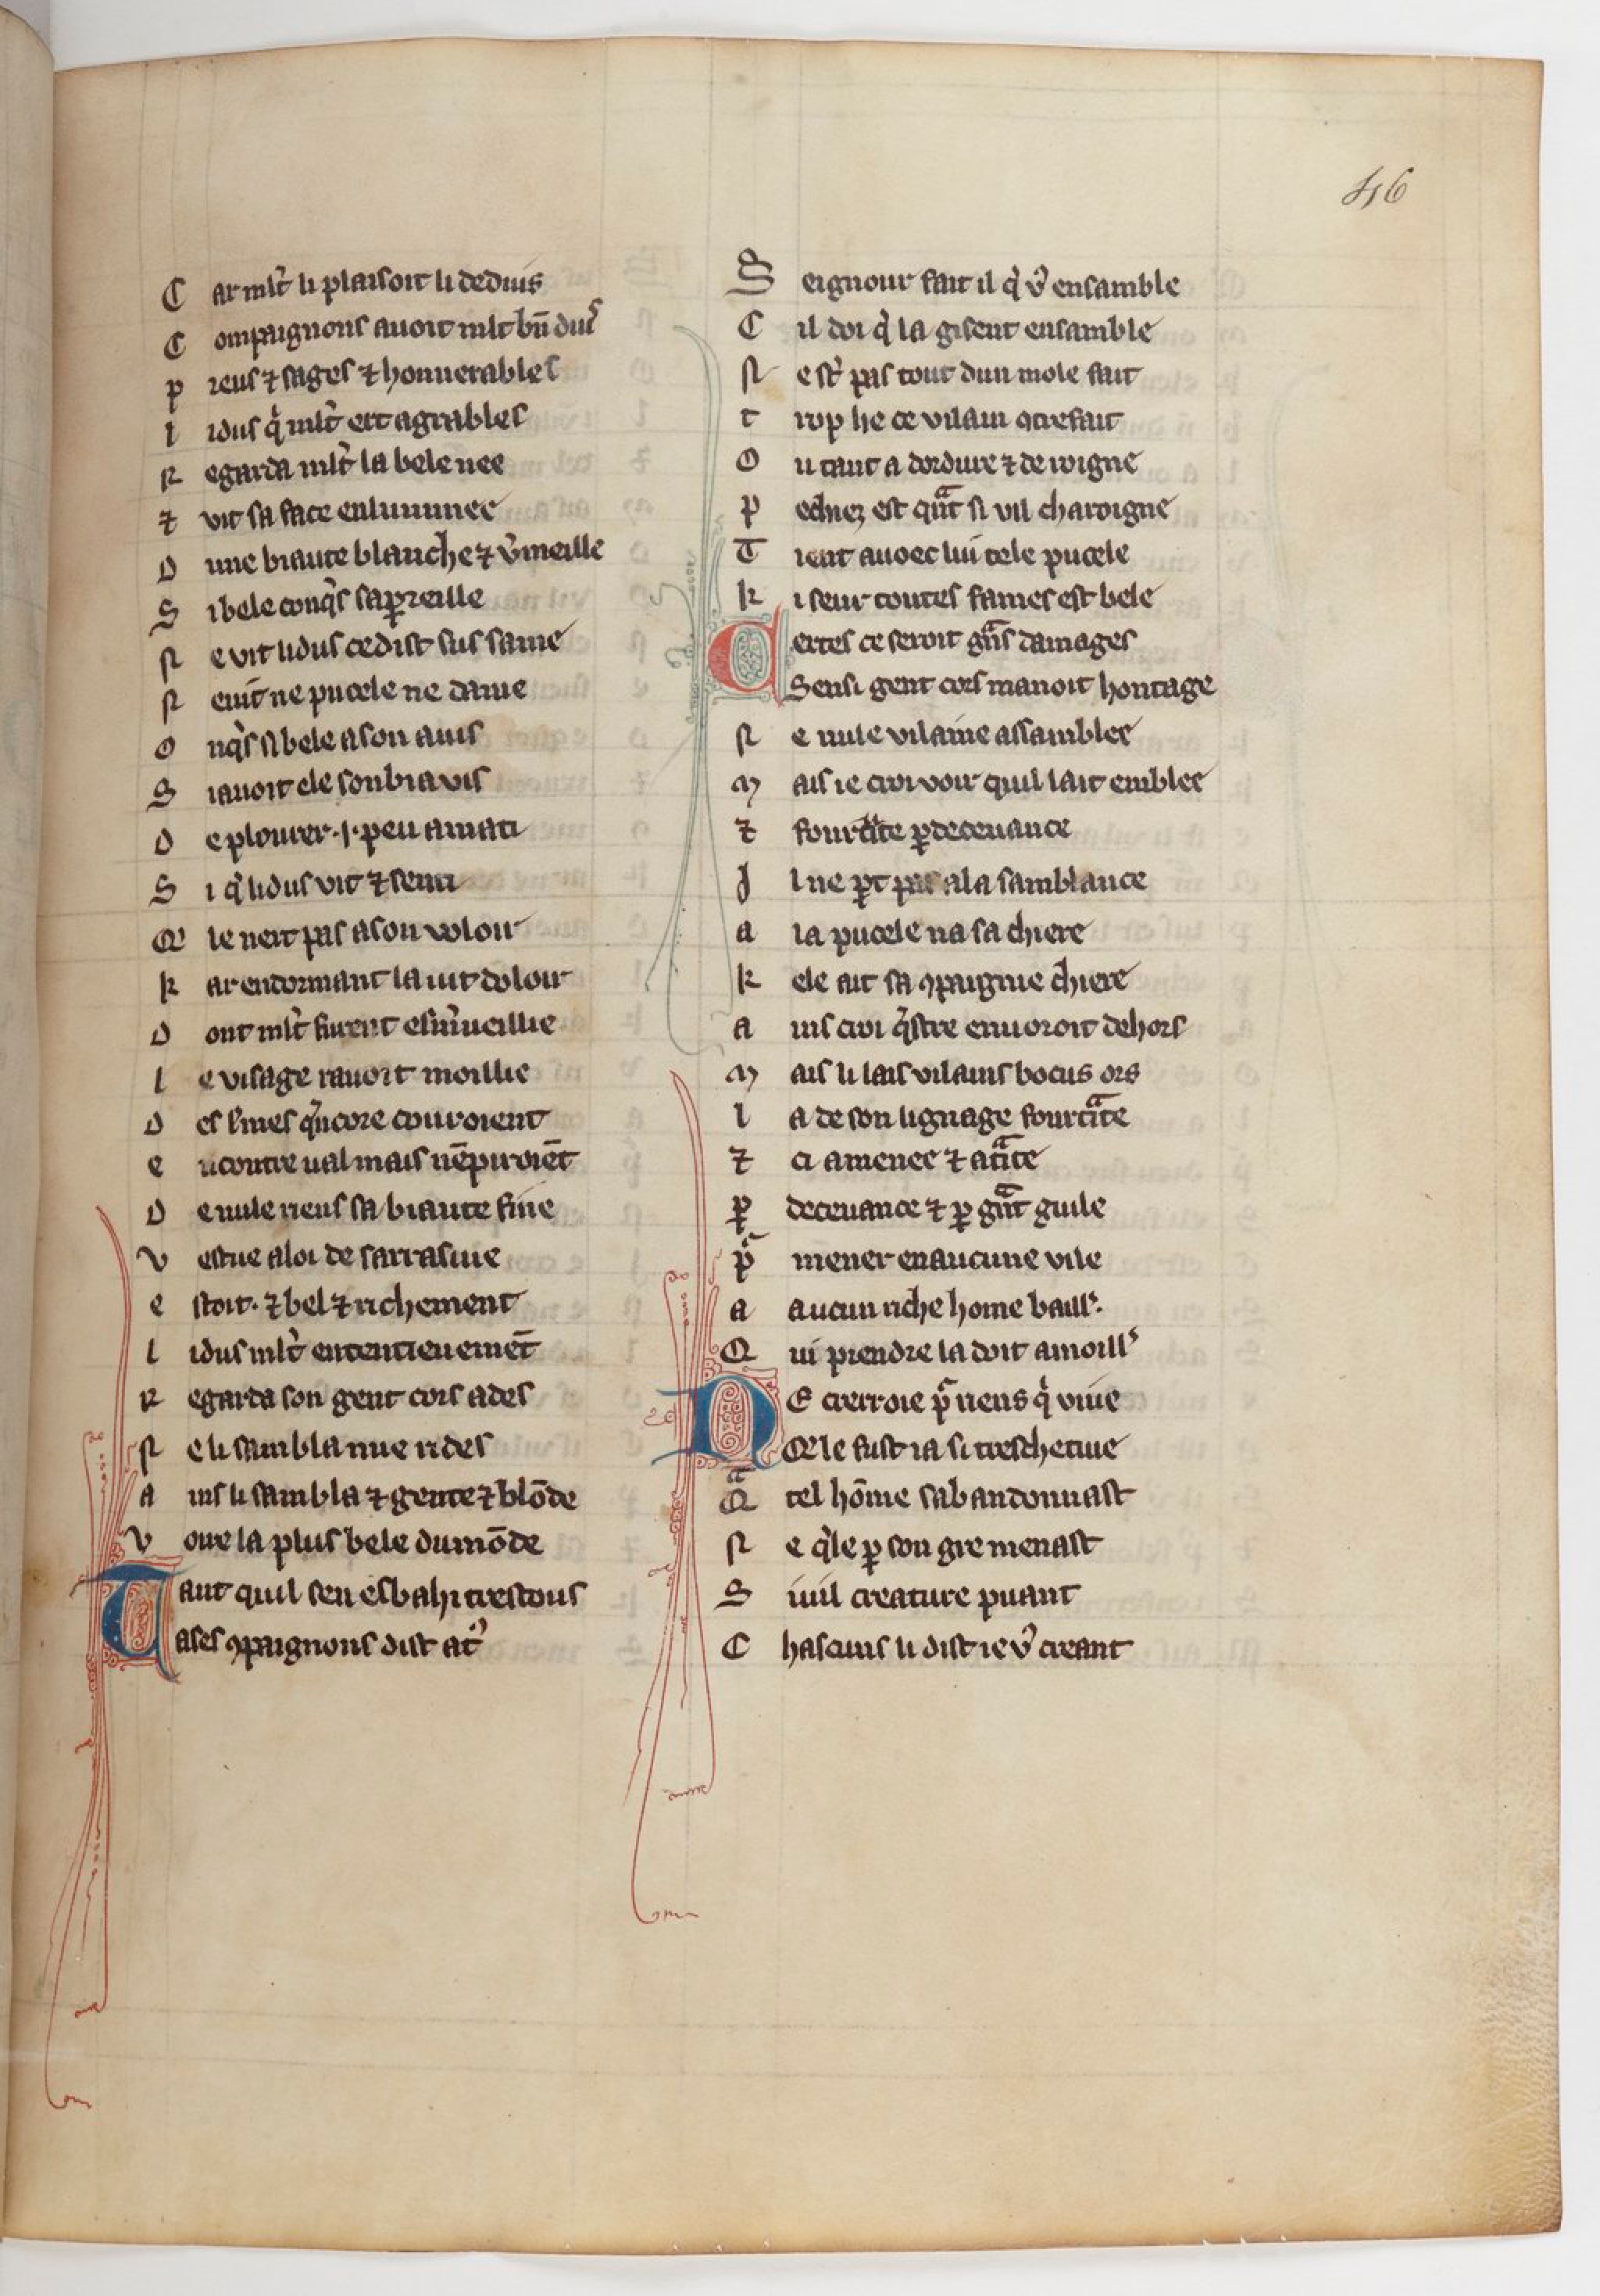 46
C ar mlt̃ li plaisoit li deduis
C ompaignons auoit mlt bñ duis
p reus ⁊ sages ⁊ honnerables
l idus qͥ mlt̃ ert agrables
R egarda mlt̃ la bele nee
⁊ vit sa face enluminee
D une biaute blanche ⁊ v̾meille
S i bele conq̃s sa ꝑreille
N e vit lidus ce dist sus same
N euit ne pucele ne dame
O nq̃s si bele a son auis
S i auoit ele son bia vis
D e plourer .i. peu amati
S i q̃ lidus vit ⁊ senti
Q̃ le nert pas a son volour
K ar en dormant la uit dolour
D ont mlt̃ furent esm̾ueillie
l e visage rauoit moillie
D es l̾mes q̃ncore couroient
e ncontre ual mais nẽpiroiẽt
D e nule riens sa biaute fine
V estue a loi de sarrasine
e stoit. ⁊ bel ⁊ richement
l idus mlt̃ ententieuemẽt
R egarda son gent cors ades
N e li sambla mie rides
A ins li sambla ⁊ gente ⁊ blõde
V oire la plus bele du mõde
T ant quil sen esbahi trestous
A ses ꝯpaignons dist a t̾ˢ
S eignour fait il q̃ v̾ ensamble
C il doi q̃ la gisent ensamble
N e st̾ pas tout dun mole fait
t rop he ce vilain ꝯtrefait
O u tant a dordure ⁊ de roigne
P echiez est qͣnt si vil charoigne
T ient auoec lui tele pucele
K i seur toutes fames est bele
C ertes ce seroit gͣns damages
S ensi gent cors manoit hontage
N e nule vilaine assamblee
M ais ie croi voir quil lait emblee
⁊ fourtͣite ꝑ deceuance
J l ne ꝑt pas a la samblance
A la pucele na sa chiere
K ele ait sa ꝯpaignie chiere
A ins croi q̃stre en uoroit dehors
M ais li lais vilains bocus ors
L a de son lignage fourtͣite
⁊ ci amenee ⁊ atͣite
ꝑ deceuance ⁊ ꝑ gͣnt guile
pͬ mener en aucune vile
A aucun riche home baill̾.
Q ui prendre la doit a moill̾
N E crerroie pͬ riens qͥ viue
Q̃le fust ia si treschetiue
Qͣ tel hõme sabandonnast
N e q̃le ꝑ son gre menast
S i uil creature puant
C hascuns li dist ie v̾ creant